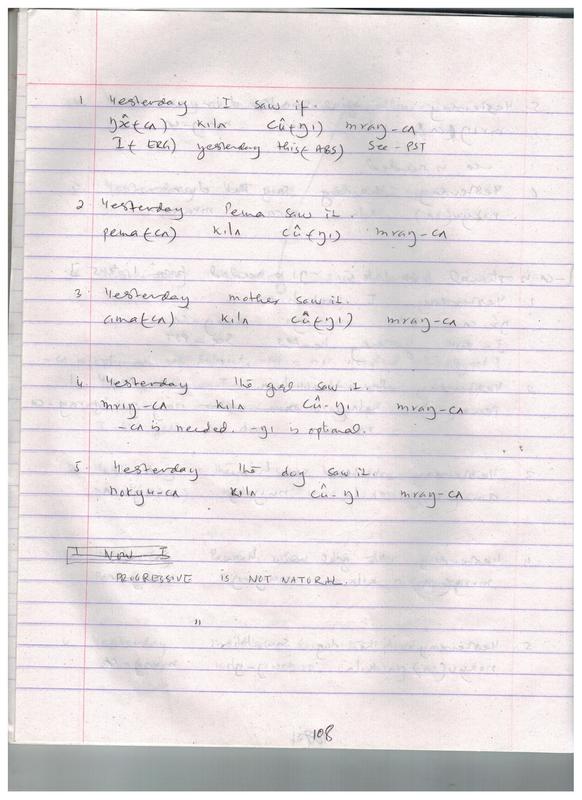 1 Yesterday I saw it.
ŋʌ̂(-cʌ) kilʌ cû(-ŋɪ) mraŋ-cʌ
I(-ERG) yesterday this(-ABS) see-PST
2 Yesterday Pema saw it.
pema(-cʌ) kilʌ cû(-ŋɪ) mraŋ-cʌ
3. Yesterday mother saw it.
ama(-cʌ) kilʌ cû(-ŋɪ) mraŋ-cʌ
4. Yesterday the girl saw it.
mrɪŋ-cʌ kilʌ cû-ŋɪ mraŋ-cʌ
-cʌ is needed. -ŋɪ is optional.
5. Yesterday the dog saw it.
nokyu-cʌ kilʌ cû-ŋɪ mraŋ-cʌ
PROGRESSIVE IS NOT NATURAL.
"
108